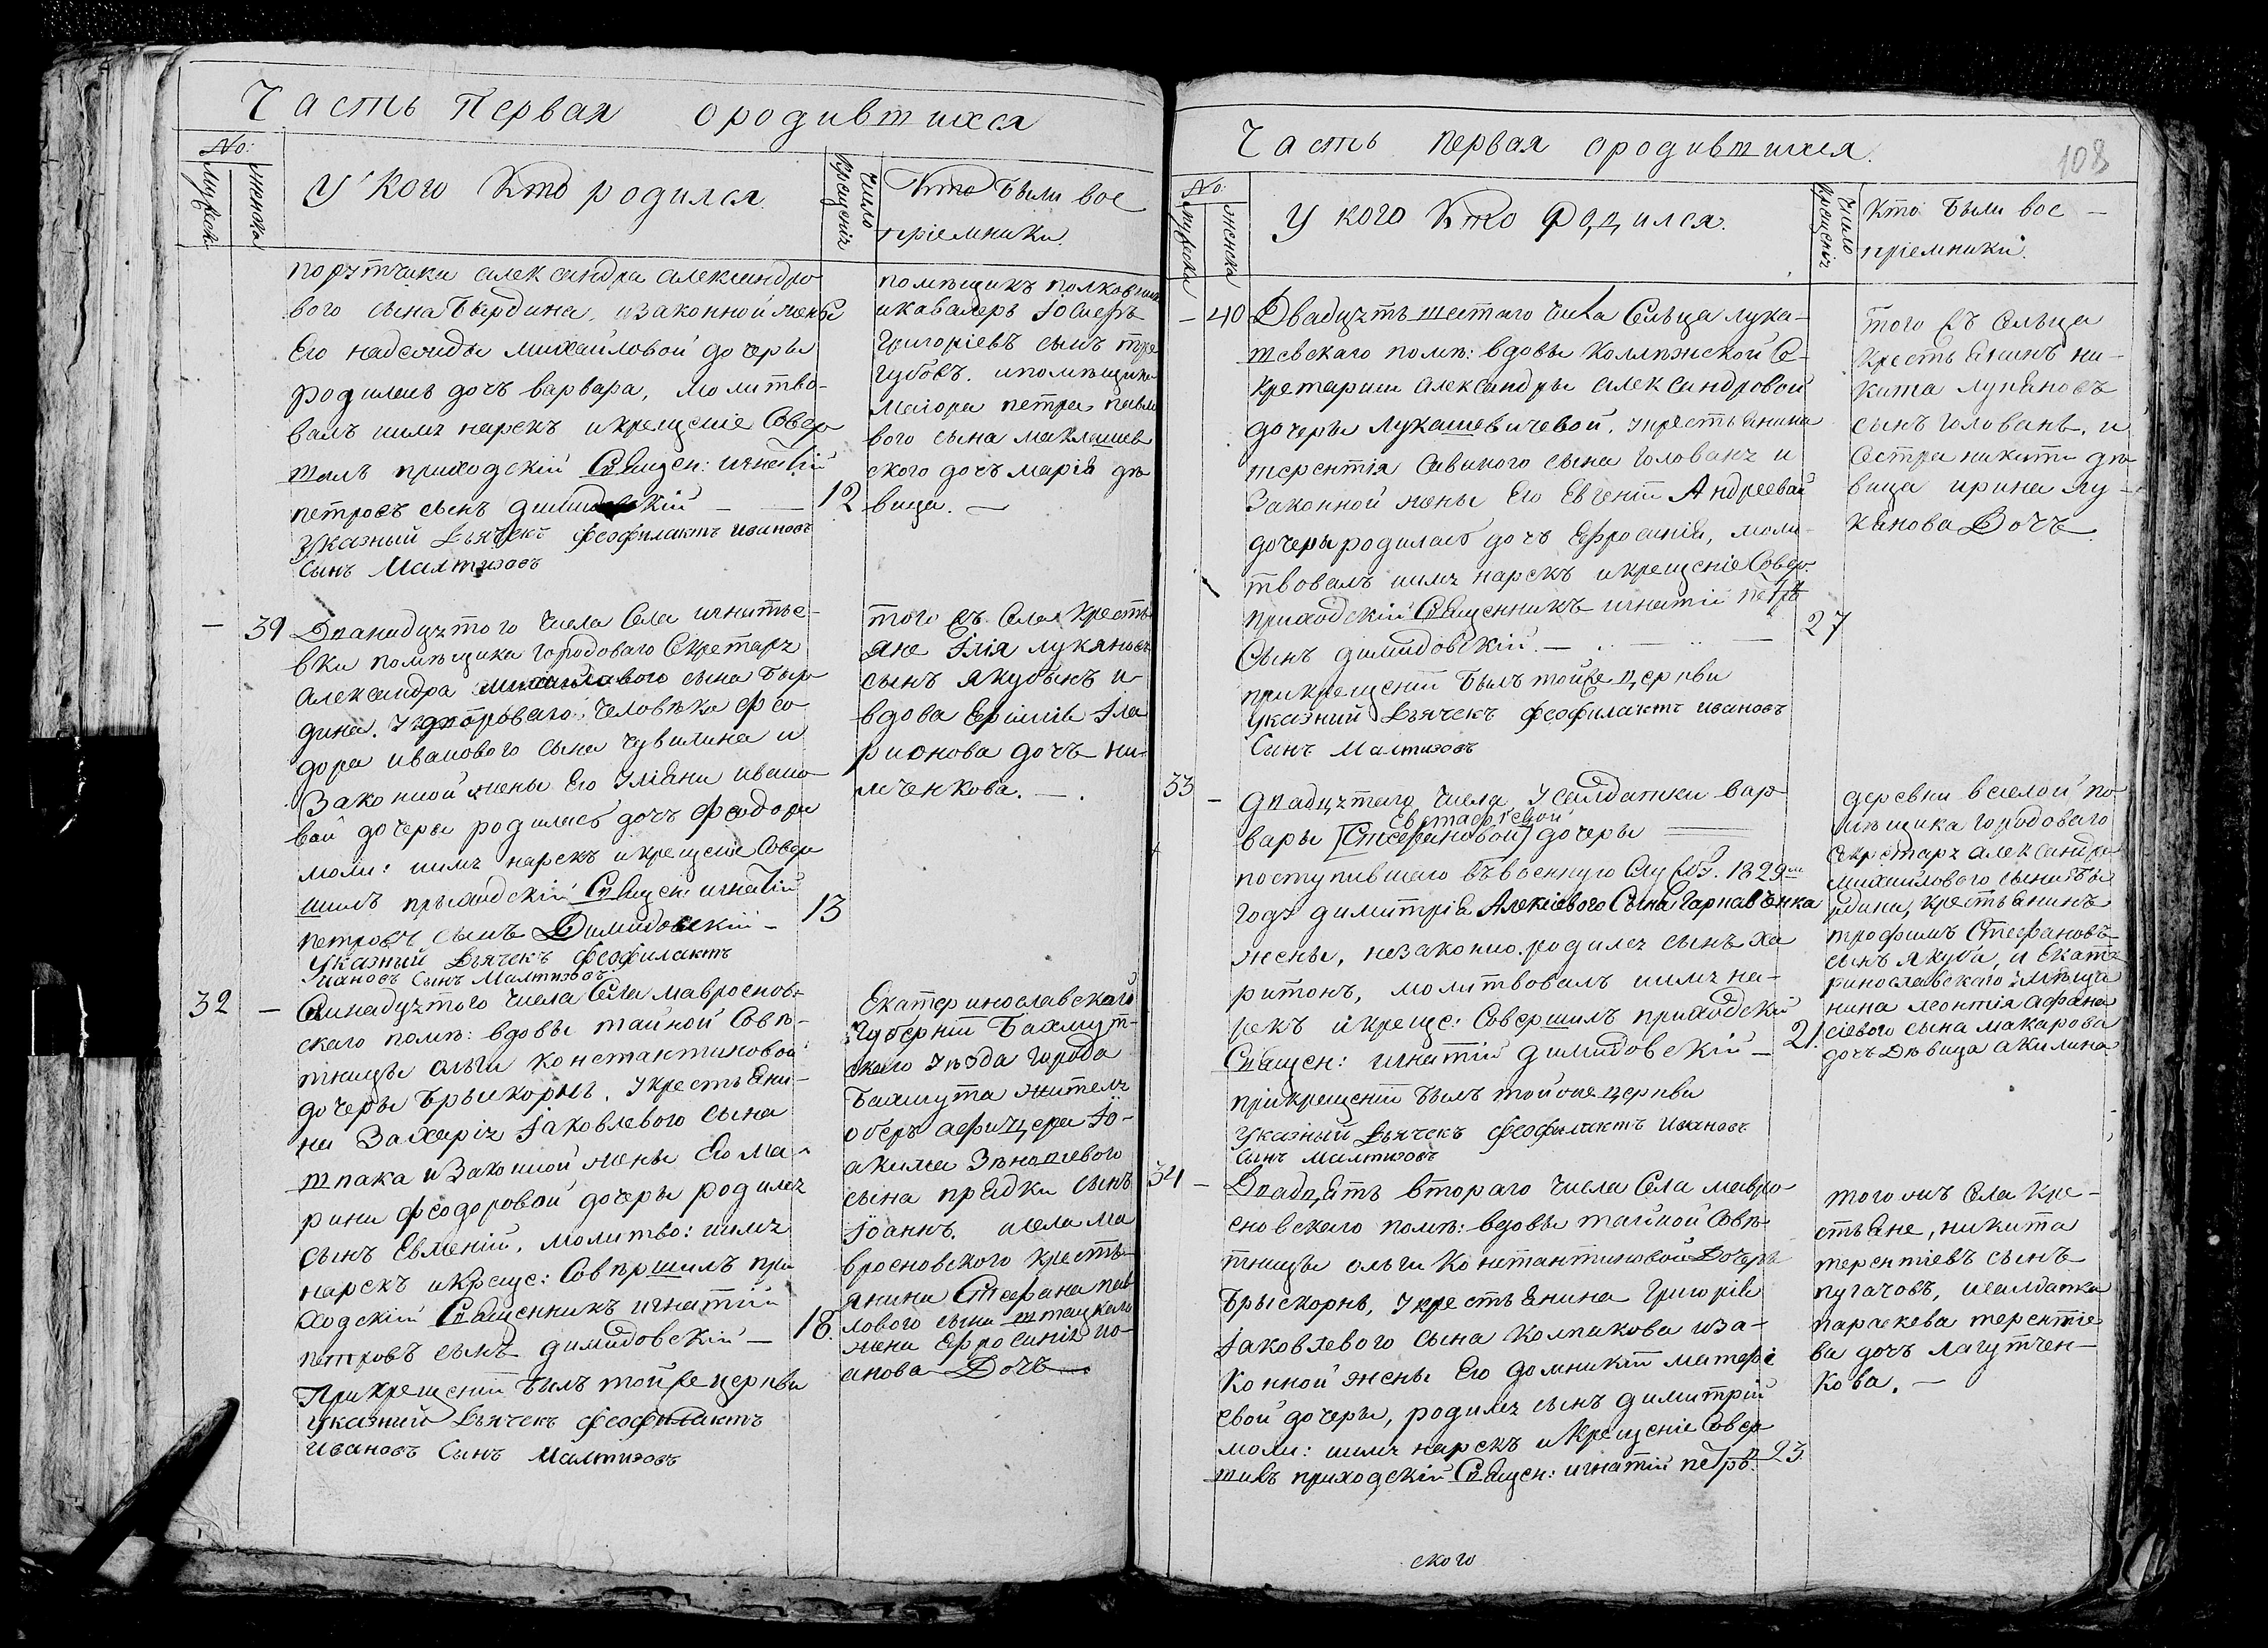 Часть первая ородившихся
No:
мужеск
женска
У кого кто родился
число
крещенія
Кто были вос
пріемники.
порутчика александра александро
вого сына Бырдина, изаконной жены
Его надежды михайловой дочеры
родилась дочъ варвара, молитво-
валъ имя нарекъ икрещеніе Совер
шилъ приходскій Священ: игнатій
петровъ сынъ димидовскій — — 12
Указный Дьячекъ феофилактъ ивановъ
Сынъ Малтизовъ
помѣщикъ полковник
икавалеръ Іосифъ
Григоріевъ сынъ тре
губовъ. ипомѣщика
маіора петра павло
вого сына маклашев
ского дочъ марія дѣ
вица. —
— 39 Дванадцятого числа Села игнатье-
вки помѣщика городоваго Секретаря
александра михайлового сына Быр
дина. У двороваго человѣка фео
дора иванового сына чувилина и
Законной жены Его Уліяни ивано
вой дочеры родилась дочъ феодора
моли: имя нарекъ икрещеніе Совер
шилъ приходскій Священ: игнатій
петровъ сынъ Димидовскій — 13
Указний Дьячекъ феофилактъ
ивановъ Сынъ Малтизовъ
того жъ Села Кресть
яне Ілія лукяновъ
сынъ якубынъ и
вдова Ефимія Іла
рионова дочъ ни-
мченкова. —.
32 — Синадцятого числа Села мавроснов-
скаго помѣ: вдовы тайной Совѣ-
тницы ольги константиновой
дочеры Брыскорнъ. Укрестьяни-
на Захарія Іаковлевого сына
шпака иЗаконной жены Его Ма-
рини феодоровой дочеры родился
сынъ Евменій, молитво: имя
нарекъ икреще: Совпршилъ при
ходскій Священникъ игнатій
петровъ сынъ димидовскій — 18.
Прикрещеніи былъ тойже церкви
указний Дьячекъ феофилактъ
ивановъ Сынъ Малтизовъ
Екатеринославской
Губерніи Бахмут-
скаго Уѣзда города
Бахмута жителя
оберъ афицера Іо-
акима Зѣновіевого
сына прядки сынъ
Іоаннъ. исела ма
вросновского кресть
янина Стефана пав
лового сына штацкого
жена Ефросинія ио-
анова Дочъ
Часть первая ородившихся.
108
No:
мужеска
женска
У кого кто родился.
число
крещенія
Кто были вос —
пріемники.
— 40 Двадцять шестаго числа Сельца лука-
шевскаго помѣ: вдовы Коллѣжской Се-
кретарши александры александровой
дочеры Лукашевичевой. Укрестьянина
терентія Савиного сына голована и
Законной жены Его Евгеніи Андреевай
дочеры родилась дочъ Ефросинія, моли-
твовалъ имя нарекъ икрещеніе Совер
приходскій Священникъ игнатій петро
Сынъ димидовскій. — .. — — 27
прикрещеніи былъ тойже церкви
указний Дьячекъ феофилактъ ивановъ
Сынъ Малтизовъ
того жъ Сельца
крестьянинъ ни-
кита лукяновъ
сынъ голованъ. и
Сестра никити дѣ
вица ирина лу-
кянова Дочъ
33 — двадцятаго числа У салдатки вар
Евстафіевой
вары [Стефановой] дочеры
поступившаго въвоенную Служб. 1829го
годъ димитрія Алексіевого Сына Гарнавенка
жены, незаконно. родился сынъ ха
ритонъ, молитвовалъ имя на-
рекъ икреще: Совершилъ приходскій
Священ: игнатій димидовскій — 21.
прикрещеніи былъ тойже церкви
Указний Дьячекъ феофилактъ ивановъ
Сынъ малтизовъ
деревни веселой по
мѣщика городоваго
секретаря александра
михайлового сына Бы
рдина, крестьянинъ
трофимъ Стефановъ
сынъ якуба, и Екате
ринославского мѣща
нина леонтія афана
сіевого сына макарова
дочъ Дѣвица акилина
34 — Двадцять втораго числа Села мавро
сновскаго помѣ: вдовы тайной Совѣ
тницы ольги Константиновой Дочеры
Брыскорнъ, Укрестьянина Григорія
Іаковлевого сына колпакова иза-
Конной жены Его домникіи матфі
евой дочеры, родился сынъ димитрій
моли: имя нарекъ икрещеніе Совер
шивъ приходскій Священ: игнатій петро: 23.
того жъ Села кре-
стьяне, никита
терентіевъ сынъ
пугачовъ, исалдатка
параскева терентіе
ва дочъ лагутчен-
кова. —
ского